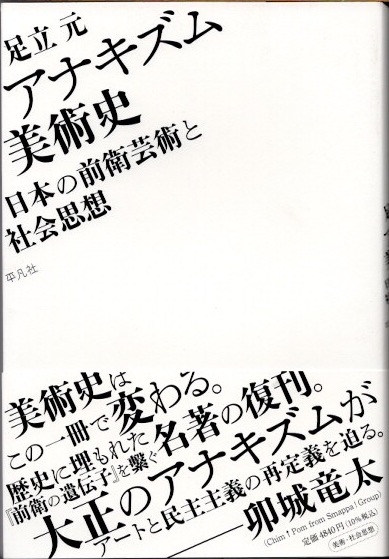 足立 元
アナキズム
美術史
日本の前衛芸術と
社会思想
平凡社
美術史は
この一冊で変わる。
歴史に埋もれた名著の復刊。
『前衛の遺伝子』を繋ぐ
大正のアナキズムが
アートと民主主義の再定義を迫る。
――卯城竜太
(Chim↑Pom from Smappa!Group)
定価4840円(10%税込)
美術・社会思想